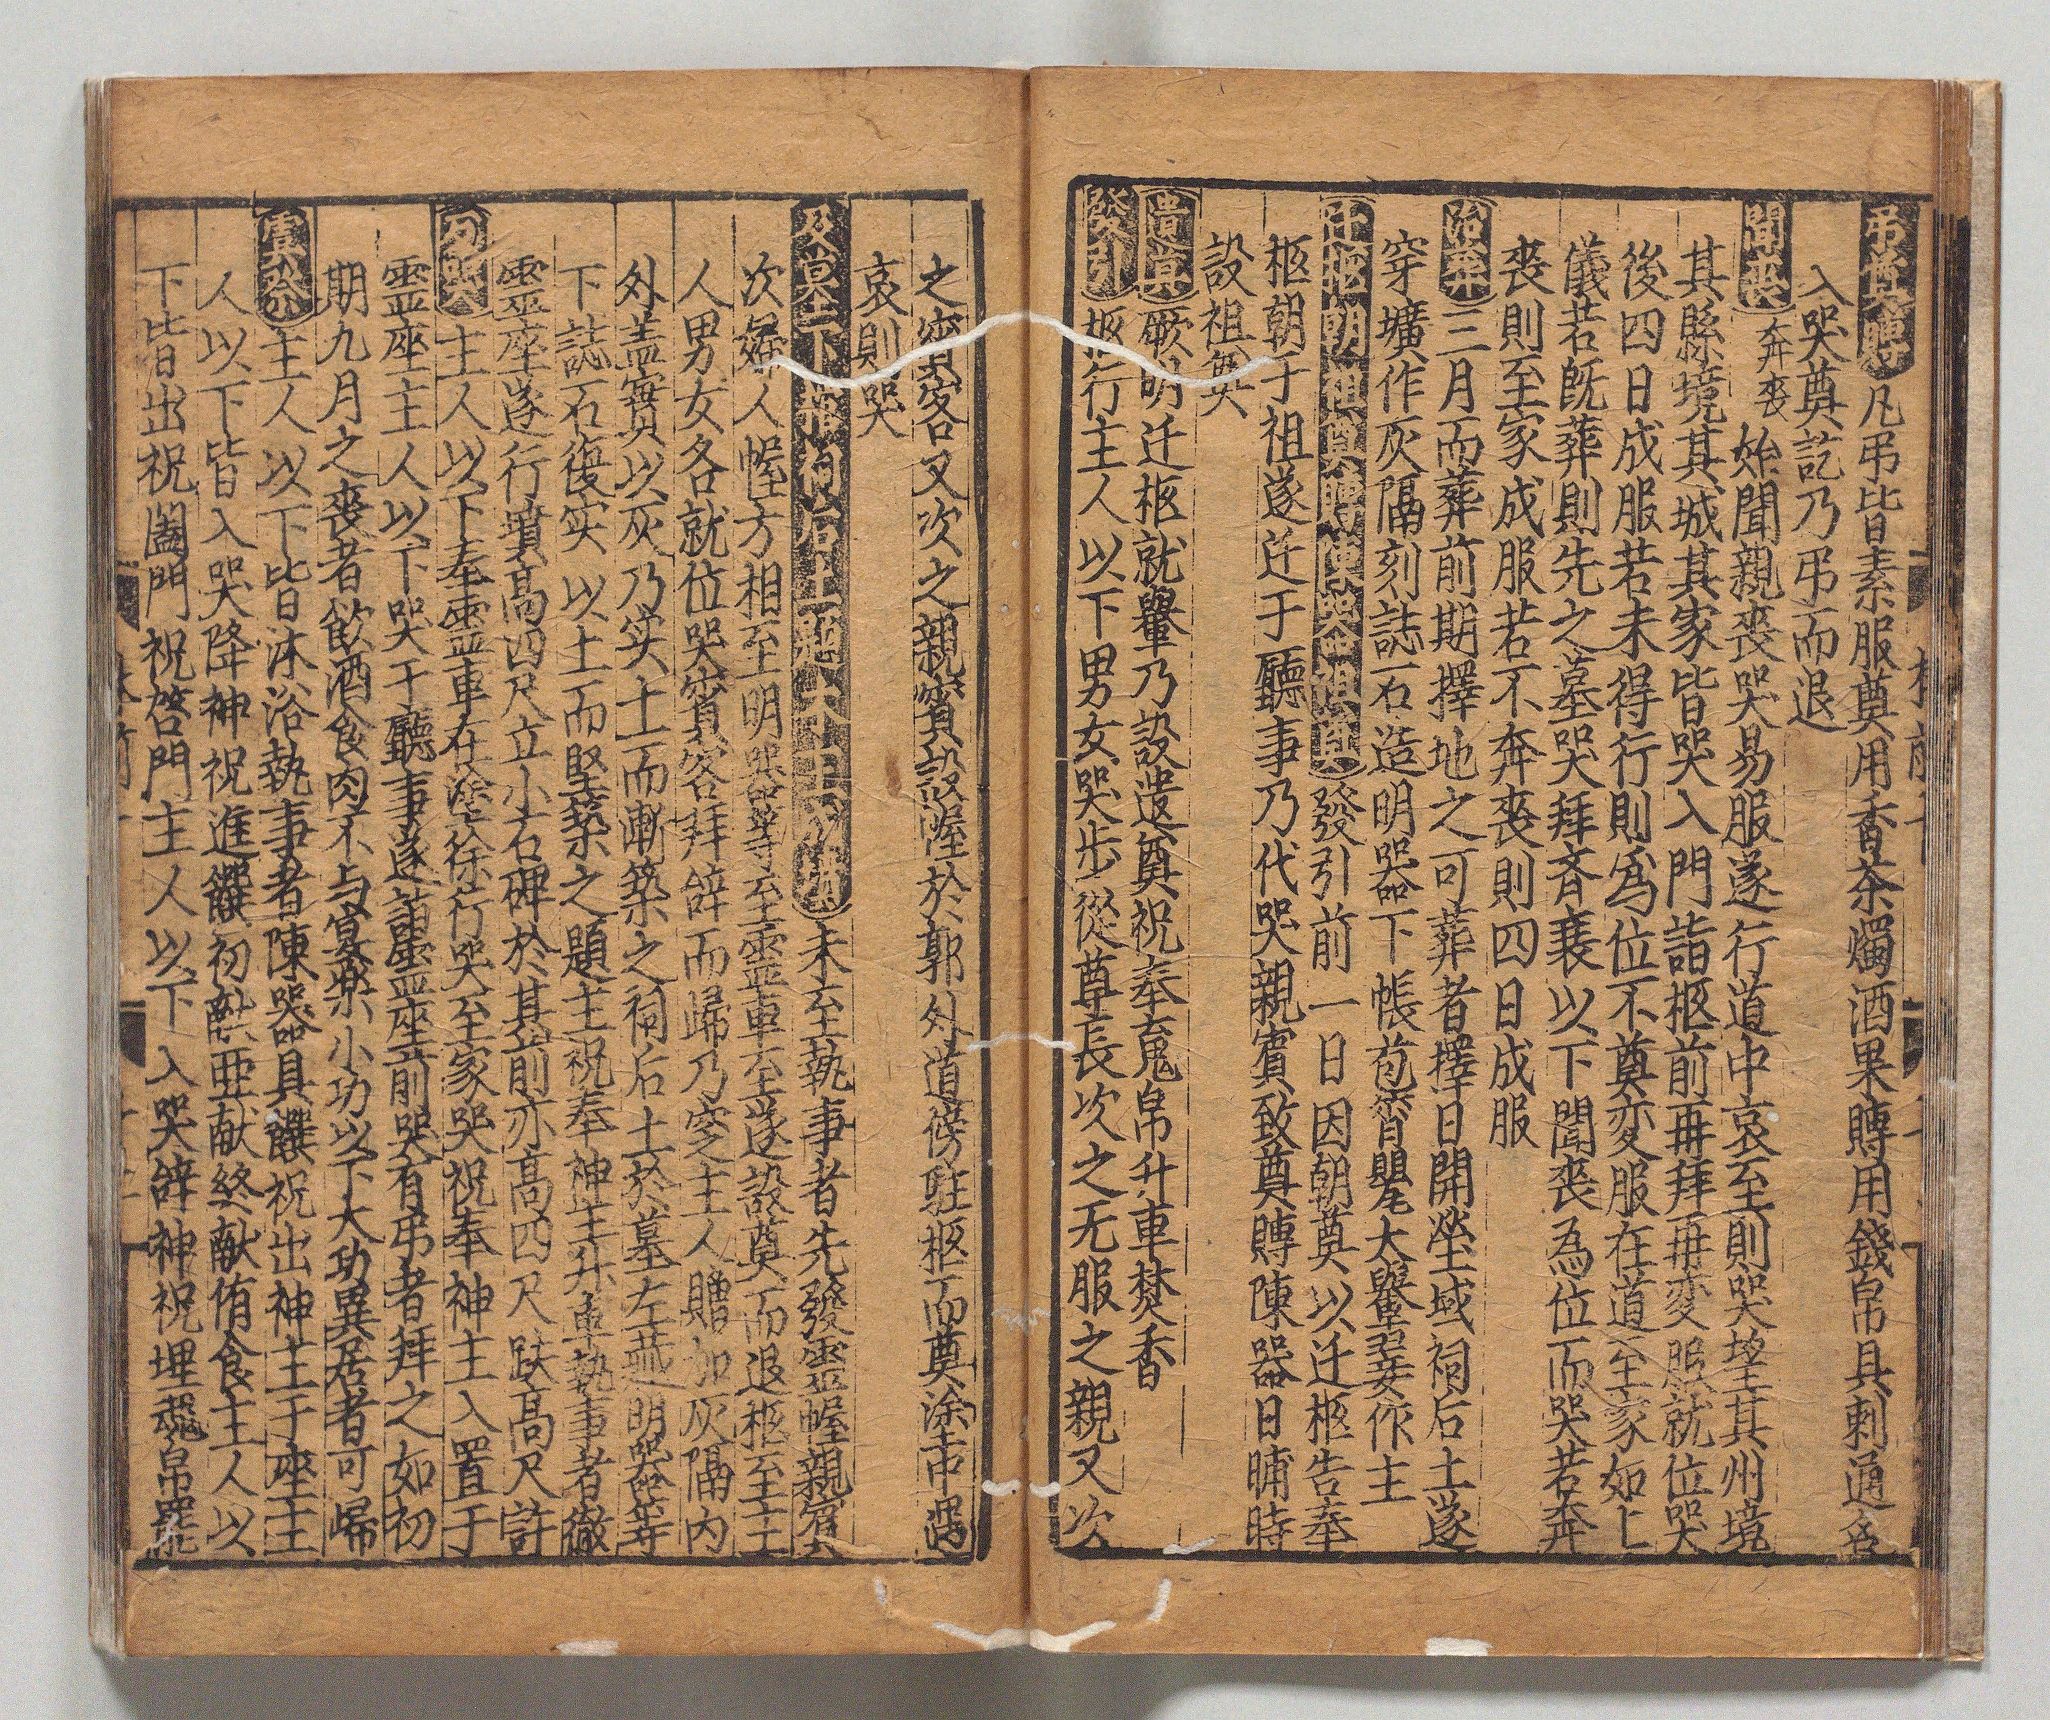 弔奠賻凡弔皆素服奠用香茶燭酒果賻用錢帛具刺通名
入哭奠訖乃弔而退
聞喪奔喪始聞親喪哭易服遂行道中哀至則哭望其州境
其縣境其城其家皆哭入門詣柩前再拜再変服就位哭
後四日成服若未得行則為位不奠変服在道至家如上
儀若旣葬則先之墓哭拜斉衰以下聞喪為位而哭若奔
喪則至家成服若不奔喪則四日成服
治葬三月而葬前期擇地之可葬者擇日開塋域祠后土遂
穿壙作灰隔刻誌石造明器下帳苞筲甖大轝翣作主
迁柩朝祖奠賻陳器祖奠發引前一日因朝奠以迁柩告奉
柩朝于祖遂迁于廳事乃代哭親賓致奠賻陳器日晡時
設祖奠
遣奠厥明迁柩就轝乃設遣奠祝奉䰟帛升車焚香
發引柩行主人以下男女哭步從尊長次之无服之親又次
之賓客又次之親賓設幄於郭外道傍駐柩而奠塗中遇
哀則哭
及墓下棺祠后土題木主成墳未至執事者先發靈幄親賓
次婦人幄方相至明器等至靈車至遂設奠而退柩至主
人男女各就位哭賓客拜辞而歸乃窆主人贈加灰隔内
外盖實以灰乃实土而漸築之祠后土於墓左藏明器等
下誌石復实以土而堅築之題主祝奉神主升車執事者徹
靈座遂行墳高四尺立小石碑於其前亦高四尺趺高尺許
反哭主人以下奉靈車在塗徐行哭至家哭祝奉神主入置于
靈座主人以下哭于廳事遂詣靈座前哭有弔者拜之如初
期九月之喪者飲酒食肉不与宴樂小功以下大功異居者可歸
虞祭主人以下皆沐浴執事者陳器具饌祝出神主于座主
人以下皆入哭降神祝進饌初献亜献終献侑食主人以
下皆出祝闔門祝啓門主人以下入哭辞神祝埋䰟帛罷